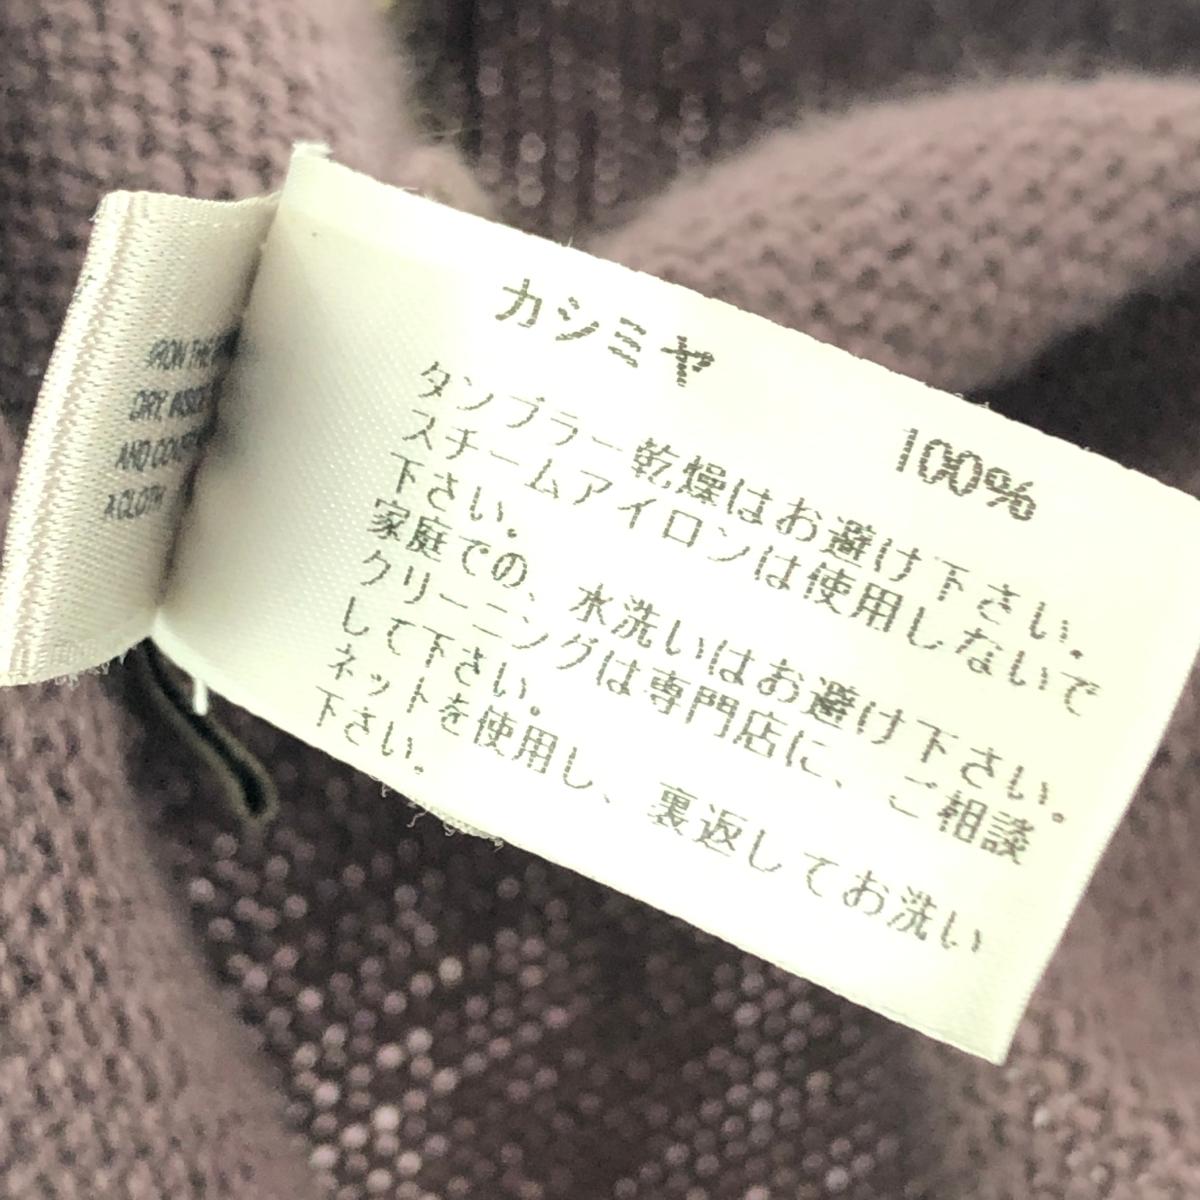 カシミヤ 100%
タンブラー乾燥はお避け下さい。
スチームアイロンは使用しないで
下さい。
家庭での、水洗いはお避け下さい。
クリーニングは専門店に、ご相談
して下さい。
ネットを使用し、裏返してお洗い
下さい。
IRON THE
DRY, INSIDE
AND
A CLOTH